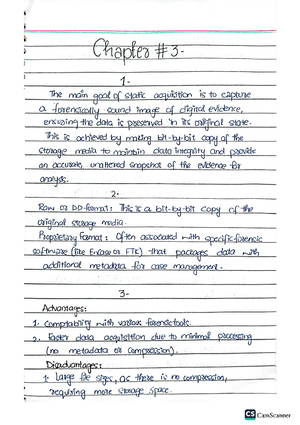 Chapter # 3-
1-
The main goal of static acquisition is to capture
a forensically sound image of digital evidence,
ensuring the data is preserved in its original state.
This is achieved by making bit-by-bit copy of the
storage media to maintain data integrity and provide
an accurate, unaltered snapshot of the evidence for
analysis.
2-
Raw or DD-format: This is a bit-by-bit copy of the
original storage media.
Proprietary Format: Often associated with specific forensic
software (like Encase or FTK) that packages data with
additional metadata for case management.
3-
Advantages:
1- Comptability with various forensic tools.
2. Faster data acquisition due to minimal processing
(no metadata or compression).
Disadvantages:
1- Large file sizes, as there is no compression,
requiring more storage space.
CS CamScanner